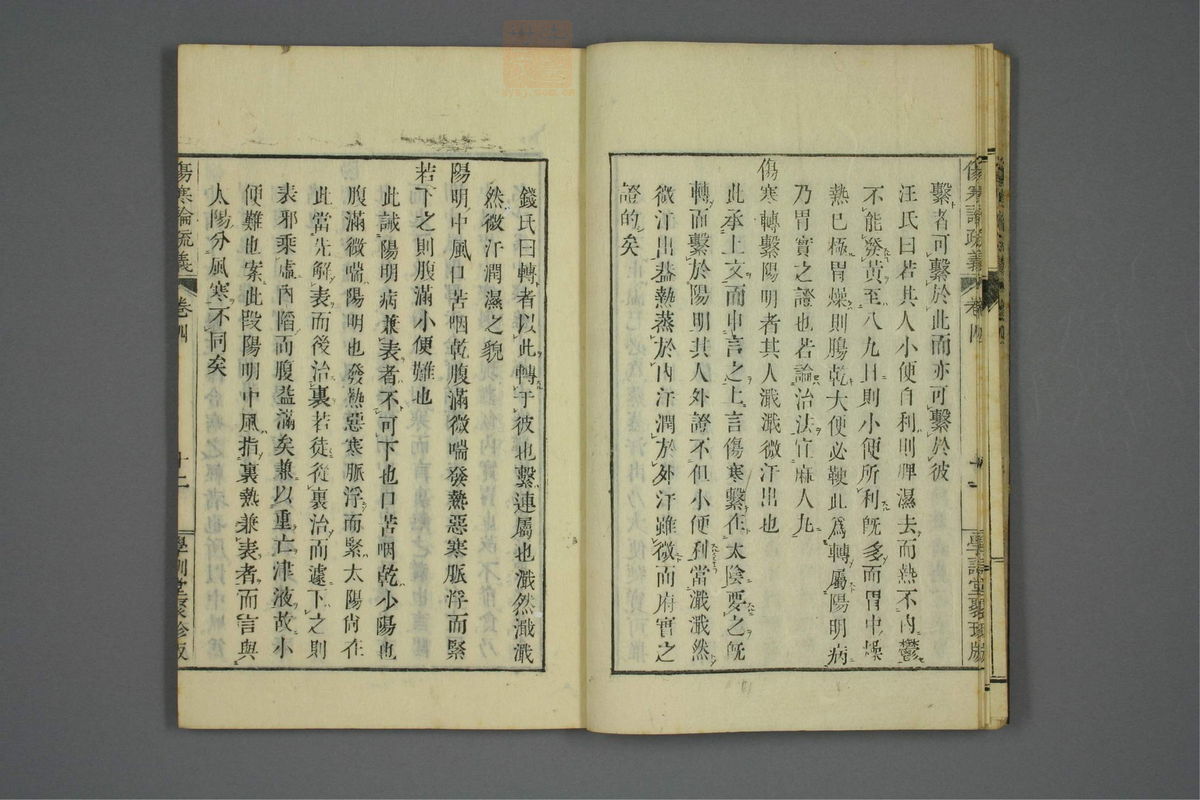 傷寒論疏義 卷四 十一 學訓堂聚珍版
繫者可繫於此而亦可繫於彼
汪氏曰若其人小便自利則脾濕去而熱不內鬱
不能發黃至八九日則小便所利旣多而胃中燥
熱已極胃燥則腸乾大便必鞕此爲轉屬陽明病
乃胃實之證也若論治法宜麻人丸
傷寒轉繫陽明者其人濈濈微汗出也
此承上文而申言之上言傷寒繫在太陰要之旣
轉而繫於陽明其人外證不但小便利當濈濈然
微汗出益熱蒸於內汗潤於外汗雖微而府實之
證的矣
錢氏曰轉者以此轉于彼也繫連屬也濈然濈濈
然微汗潤濕之貌
陽明中風口苦咽乾腹滿微喘發熱惡寒脈浮而緊
若下之則腹滿小便難也
此誡陽明病兼表者不可下也口苦咽乾少陽也
腹滿微喘陽明也發熱惡寒脈浮而緊太陽尙在
此當先解表而後治裏若徒從裏治而遽下之則
表邪乘虛內陷而腹益滿矣兼以重亡津液故小
便難也案此段陽明中風指裏熱兼表者而言與
太陽分風寒不同矣
傷寒論疏義 卷四 十二 學訓堂聚珍版